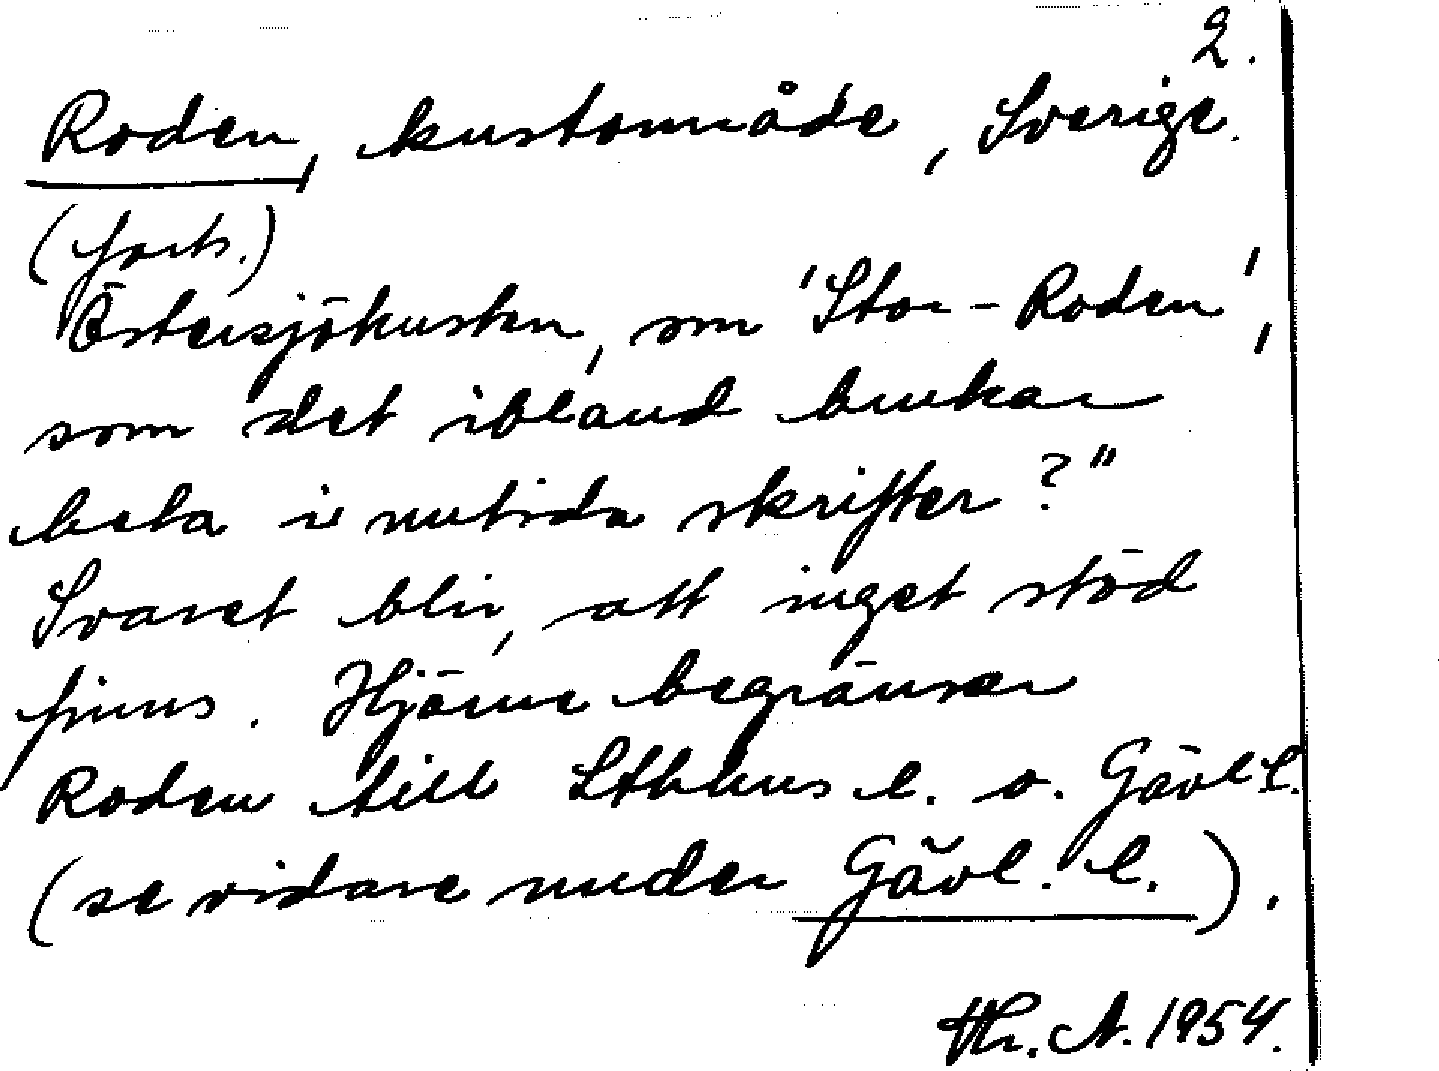 2.
Roden, kustområde, Sverige.
(forts.)
Östersjökusten, om 'Stor-Roden',
som det ibland brukar
heta i nutida skrifter?"
Svaret blir, att inget stöd
finns. Hjärne begränsar
Roden till Sthlms l. o. Gävl. l.
(se vidare under Gävl. l.).
Th. A. 1954.